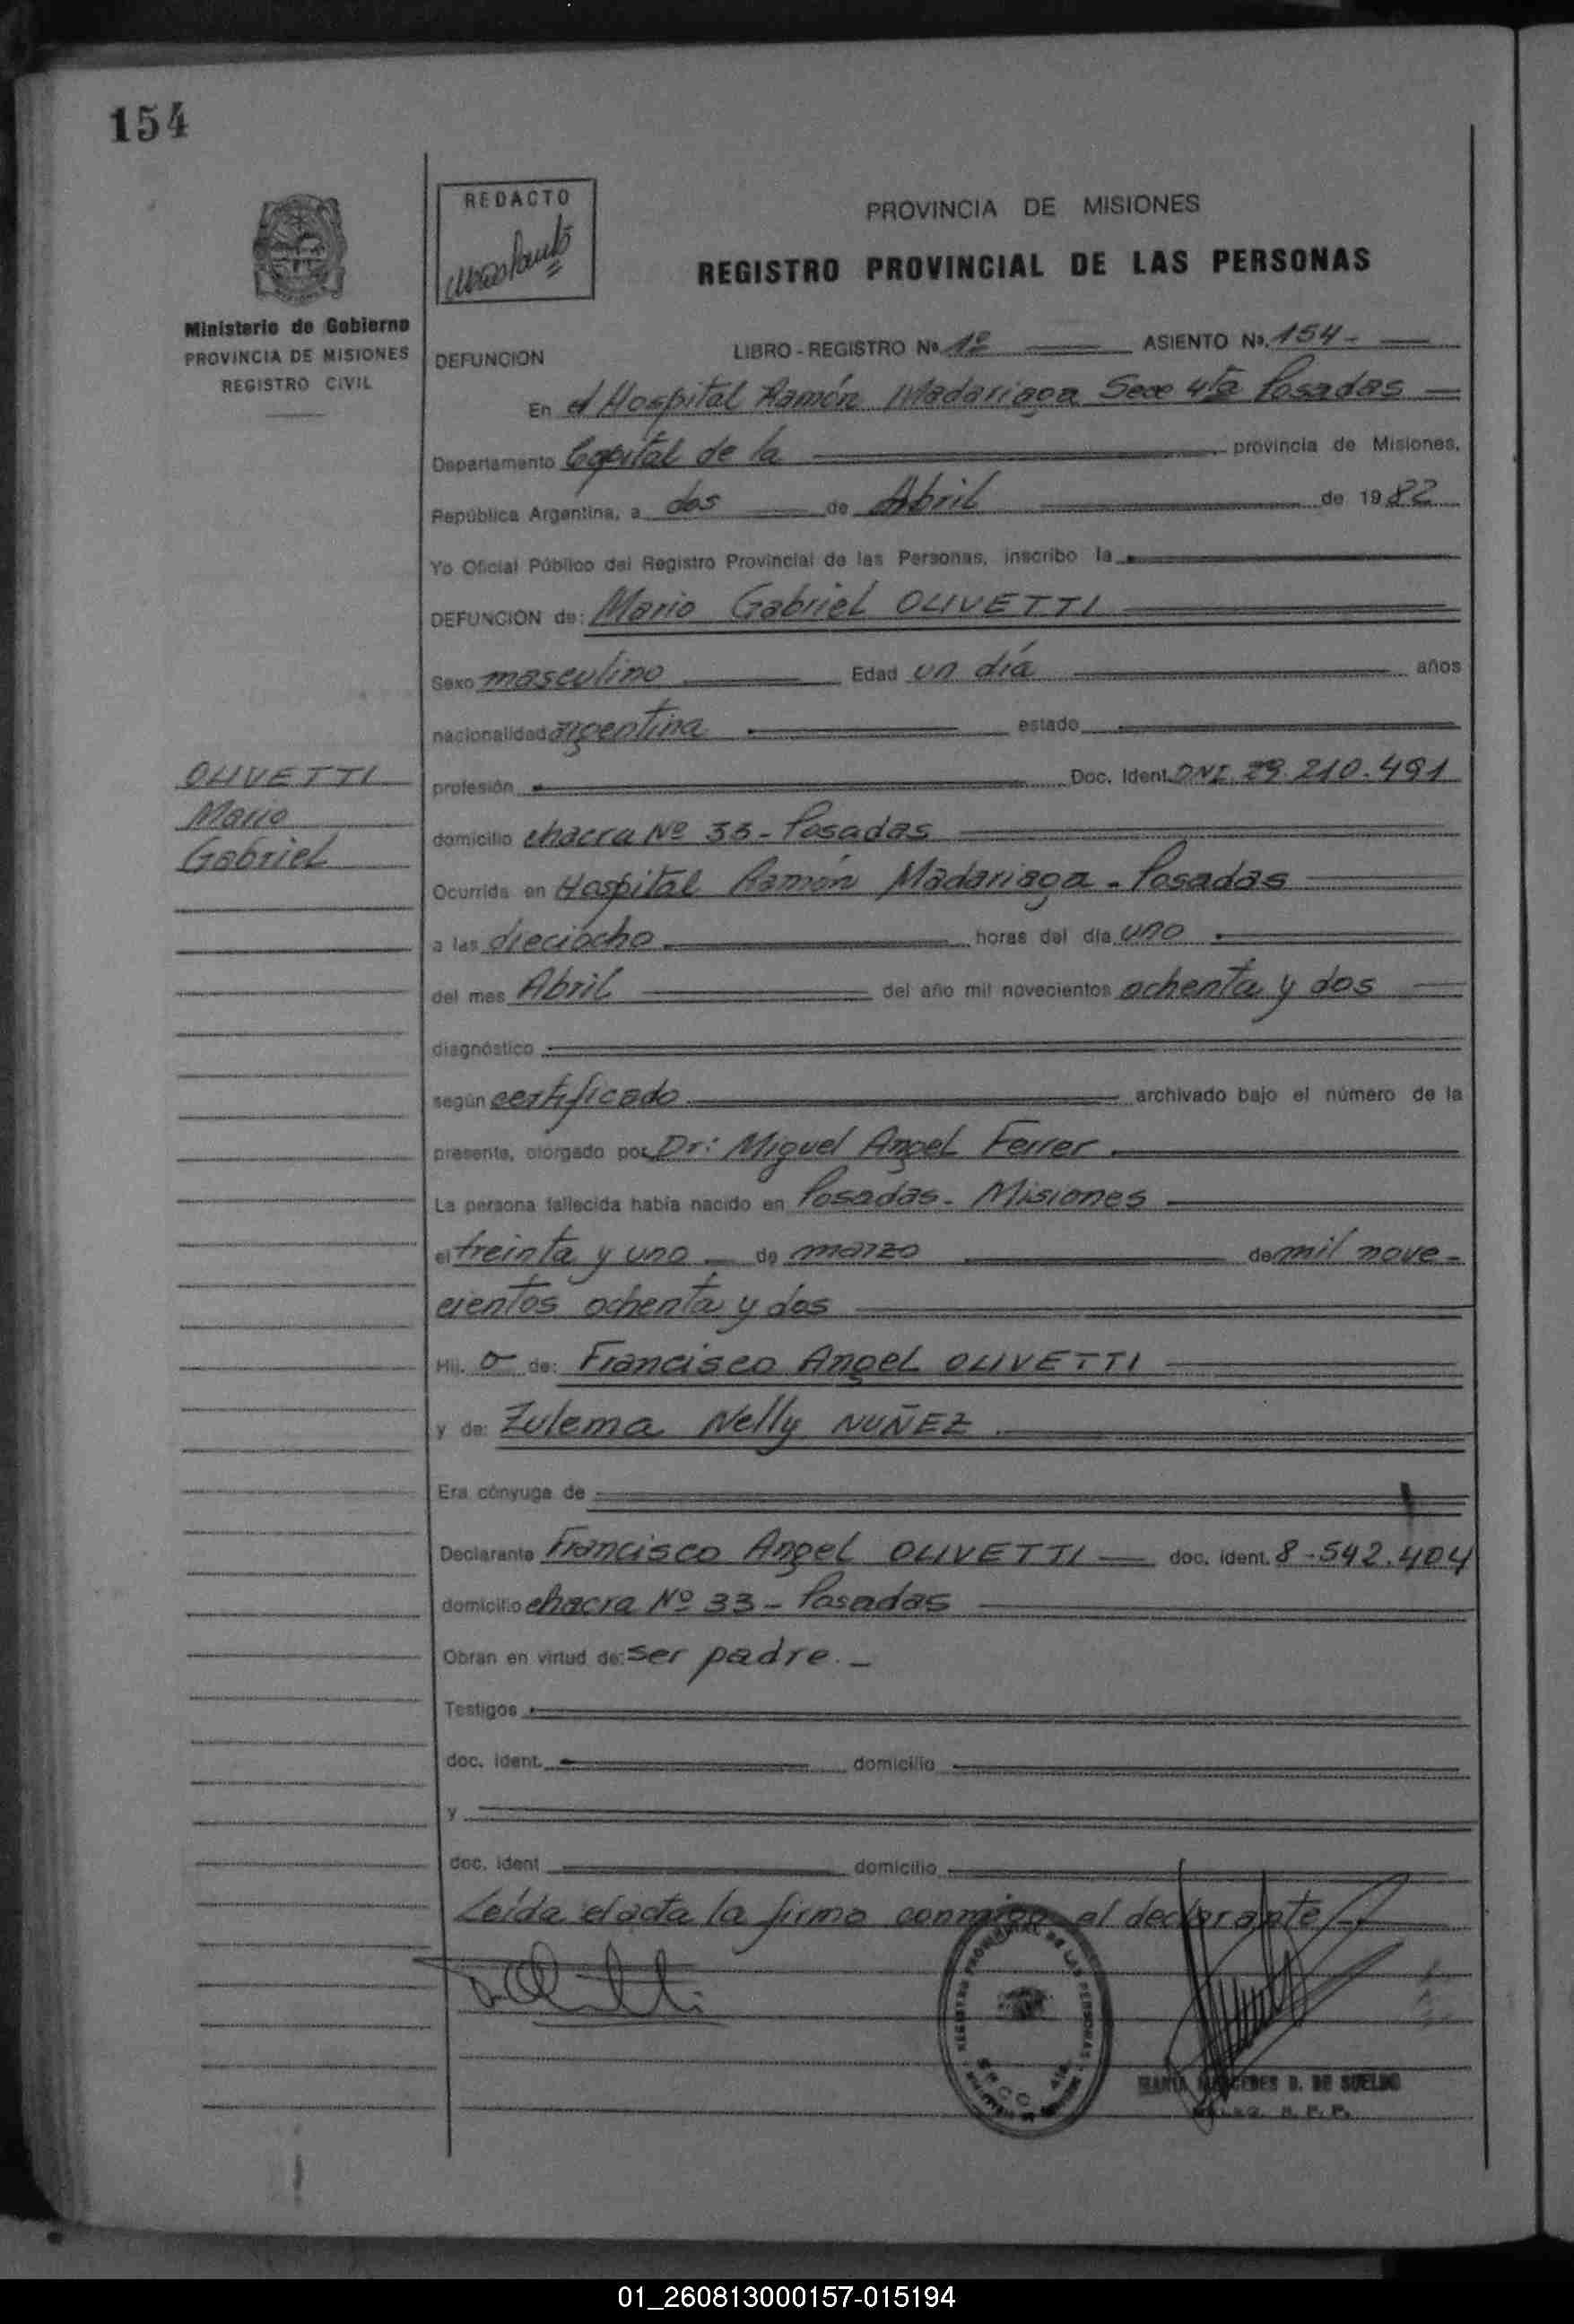 154
REDACTO
Ministerio de Gobierno
PROVINCIA DE MISIONES
REGISTRO CIVIL
PROVINCIA DE MISIONES
REGISTRO PROVINCIAL DE LAS PERSONAS
DEFUNCION LIBRO - REGISTRO Nº 1º ASIENTO Nº 154 -
En el Hospital Ramón Madariaga Secc 4ta Posadas
Departamento Capital de la provincia de Misiones,
República Argentina, a dos de Abril de 1982
Yo Oficial Público del Registro Provincial de las Personas, inscribo la
DEFUNCION de: Mario Gabriel OLIVETTI
Sexo masculino Edad un día años
nacionalidad argentina estado
OLIVETTI
Mario
Gabriel
profesión Doc. Ident. DNI. 29.210.491
domicilio chacra Nº 33 - Posadas
Ocurrida en Hospital Ramón Madariaga - Posadas
a las dieciocho horas del día uno
del mes Abril del año mil novecientos ochenta y dos
diagnóstico
según certificado archivado bajo el número de la
presente, otorgado por Dr: Miguel Angel Ferrer
La persona fallecida había nacido en Posadas - Misiones
el treinta y uno de marzo de mil nove-
cientos ochenta y dos
Hij. o de: Francisco Angel OLIVETTI
y de: Zulema Nelly NUÑEZ
Era cónyuge de
Declarante Francisco Angel OLIVETTI doc. ident. 8-542.404
domicilio chacra Nº 33 - Posadas
Obran en virtud de: ser padre. -
Testigos
doc. ident. domicilio
y
doc. ident domicilio
Leída el acta la firma conmigo el declarante
REGISTRO PROVINCIAL DE LAS PERSONAS
MARIA MERCEDES D. DE SUELDO
R. P. P.
01_260813000157-015194